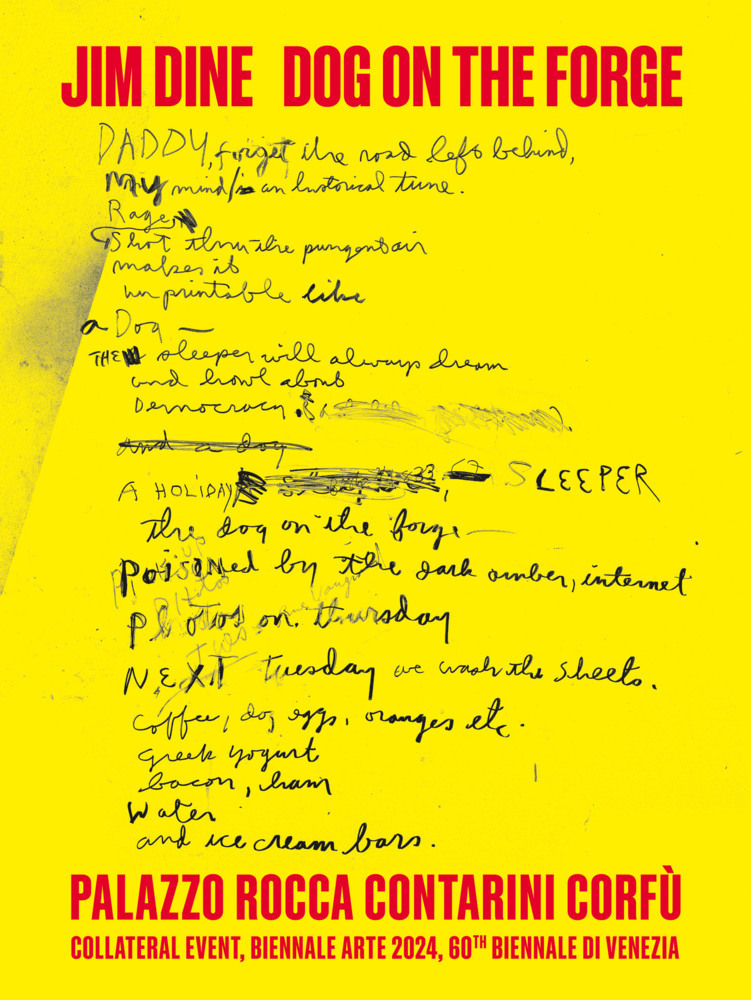 JIM DINE DOG ON THE FORGE
DADDY, forget the road left behind,
my mind/is an historical tune.
Rage
Shot thru the pungent air
makes it
unprintable like
a Dog —
THE sleeper will always dream
and howl about
Democracy.
and a dog
A HOLIDAY, SLEEPER
the dog on the forge —
Poisoned by the dark amber, internet
Photos on. thursday
NEXT tuesday we wash the sheets.
coffee, dog eggs, oranges etc.
greek yogurt
bacon, ham
Water
and ice cream bars.
PALAZZO ROCCA CONTARINI CORFÙ
COLLATERAL EVENT, BIENNALE ARTE 2024, 60TH BIENNALE DI VENEZIA